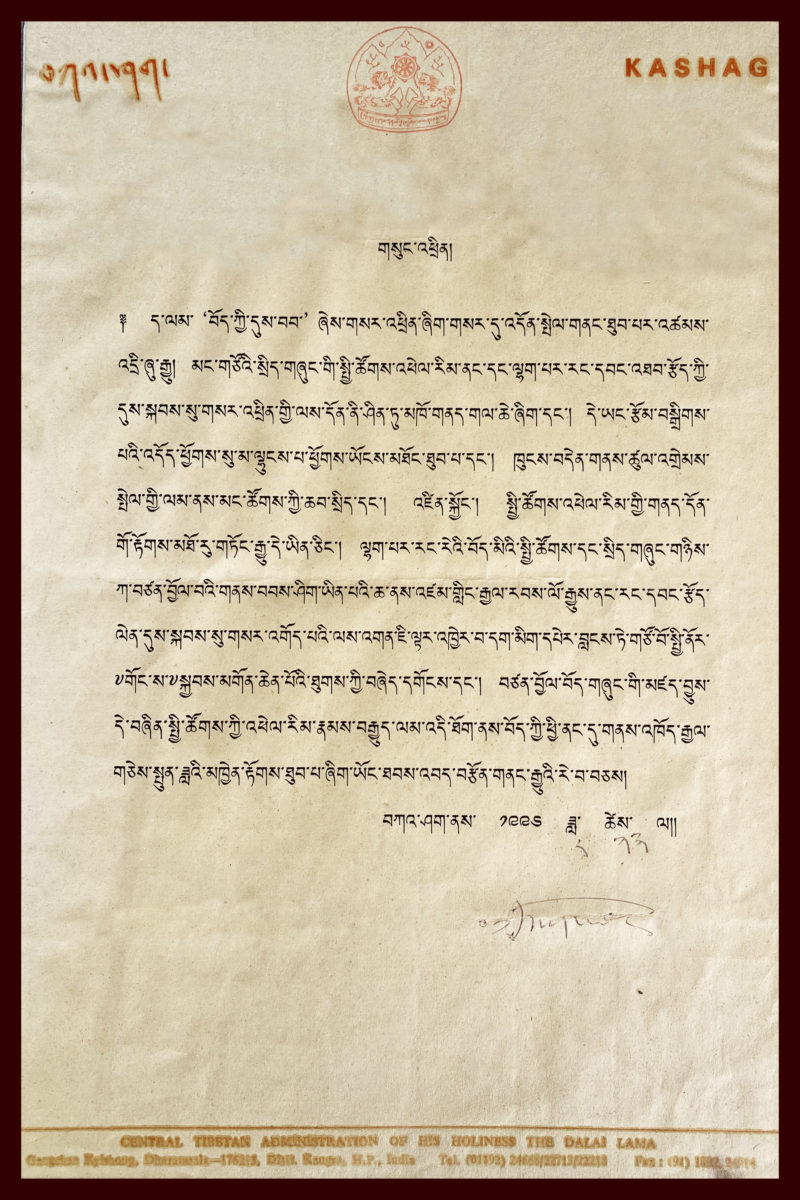 KASHAG
གསུང་འཕྲིན།
༈ ད་ལམ་ ‘བོད་ཀྱི་དུས་བབ་’ ཞེས་གསར་འཕྲིན་ཞིག་གསར་དུ་འདོན་སྤེལ་གནང་ཐུབ་པར་འཚམས་
འདྲི་ཞུ་རྒྱུ། མང་གཙོའི་སྲིད་གཞུང་གི་སྤྱི་ཚོགས་འཕེལ་རིམ་ནང་དང་ལྷག་པར་རང་དབང་འཐབ་རྩོད་ཀྱི་
དུས་སྐབས་སུ་གསར་འཕྲིན་གྱི་ལས་དོན་ནི་ཤིན་ཏུ་མཁོ་གནད་གལ་ཆེ་ཞིག་དང་། དེ་ཡང་རྩོམ་བསྒྲིགས་
པའི་འདོད་ཕྱོགས་སུ་མ་ལྷུངས་པ་ཕྱོགས་ཡོངས་མཐོང་ཐུབ་པ་དང་། ཁུངས་བདེན་གནས་ཚུལ་འགྲེམས་
སྤེལ་གྱི་ལམ་ནས་མང་ཚོགས་ཀྱི་ཆབ་སྲིད་དང་། འཛིན་སྐྱོང་། སྤྱི་ཚོགས་འཕེལ་རིམ་གྱི་གནད་དོན་
གོ་རྟོགས་མཐོ་རུ་གཏོང་རྒྱུ་དེ་ཡིན་ཅིང་། ལྷག་པར་རང་རེའི་བོད་མིའི་སྤྱི་ཚོགས་དང་སྲིད་གཞུང་གཉིས་
ཀ་བཙན་བྱོལ་བའི་གནས་བབས་ཤིག་ཡིན་པའི་ཆ་ནས་འཛམ་གླིང་རྒྱལ་རབས་ལོ་རྒྱུས་ནང་རང་དབང་རྩོད་
ལེན་དུས་སྐབས་སུ་གསར་འགོད་པའི་ལས་འགན་ཇི་ལྟར་འཁྱེར་བ་དག་མིག་དཔེར་བླངས་ཏེ་གཙོ་བོ་སྤྱི་ནོར་
༧གོང་ས་༧སྐྱབས་མགོན་ཆེན་པོའི་ཐུགས་ཀྱི་བཞེད་དགོངས་དང་། བཙན་བྱོལ་བོད་གཞུང་གི་མཛད་བྱུས་
དེ་བཞིན་སྤྱི་ཚོགས་ཀྱི་འཕེལ་རིམ་རྣམས་བརྒྱུད་ལམ་འདི་ཐོག་ནས་བོད་ཀྱི་ཕྱི་ནང་དུ་གནས་འཁོད་རྒྱལ་
གཅེས་སྤུན་ཟླའི་མཁྱེན་རྟོགས་ཐུབ་པ་ཞིག་ཡོང་ཐབས་འབད་བརྩོན་གནང་རྒྱུའི་རེ་བ་བཅས།
བཀའ་ཤག་ནས་ ༡༩༩༦ ཟླ་ ཚེས་ ལ།།
CENTRAL TIBETAN ADMINISTRATION OF HIS HOLINESS THE DALAI LAMA
Gangchen Kyishong, Dharamsala—176215, Distt. Kangra, H.P., India Tel. (01892) 24665/22713/22218 Fax : (91) 1892